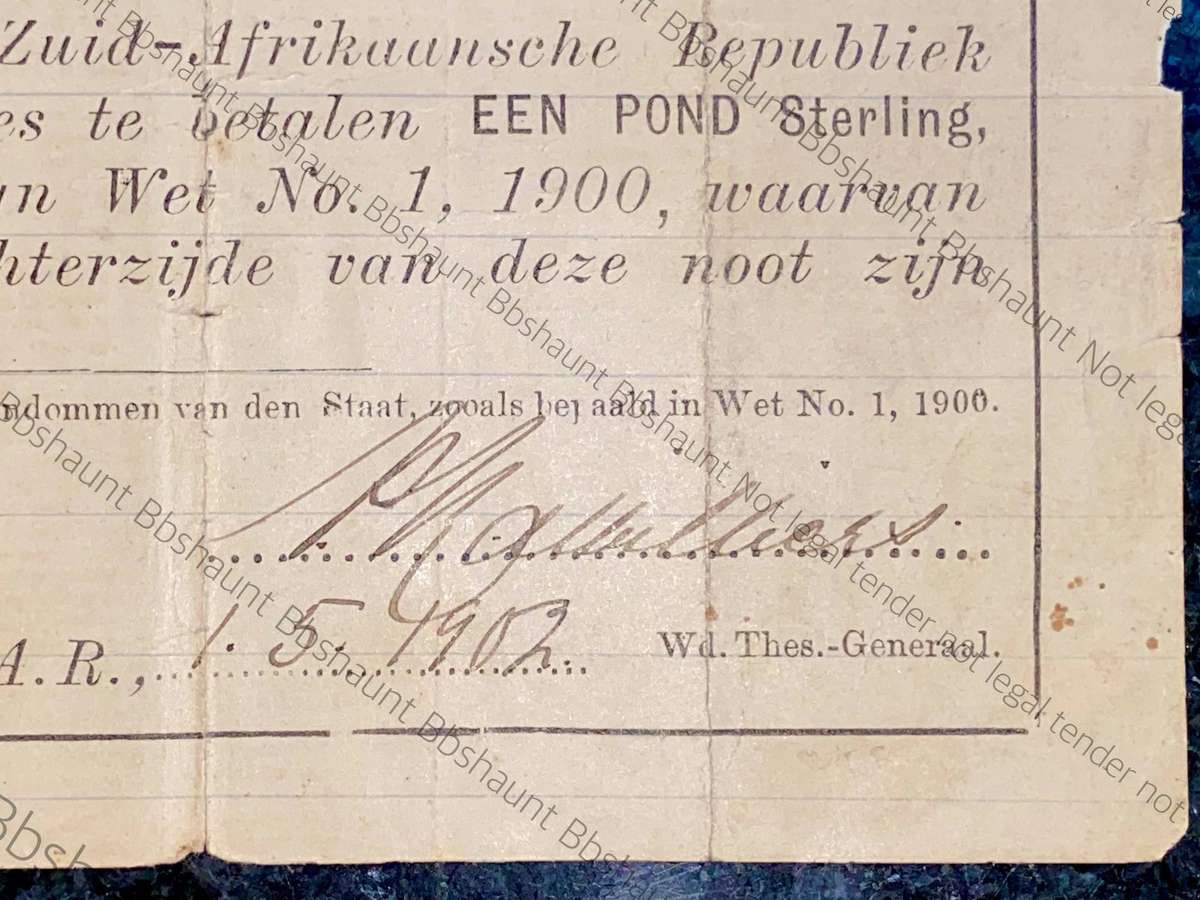 Zuid-Afrikaansche Republiek
es te betalen EEN POND Sterling,
an Wet No. 1, 1900, waarvan
hterzijde van deze noot zijn
ndommen van den Staat, zooals bepaald in Wet No. 1, 1900.
A.R., 1.5.1902
Wd. Thes.-Generaal.
Bbshaunt Bbshaunt Bbshaunt Bbshaunt Bbshaunt Not legal tender not legal tender not